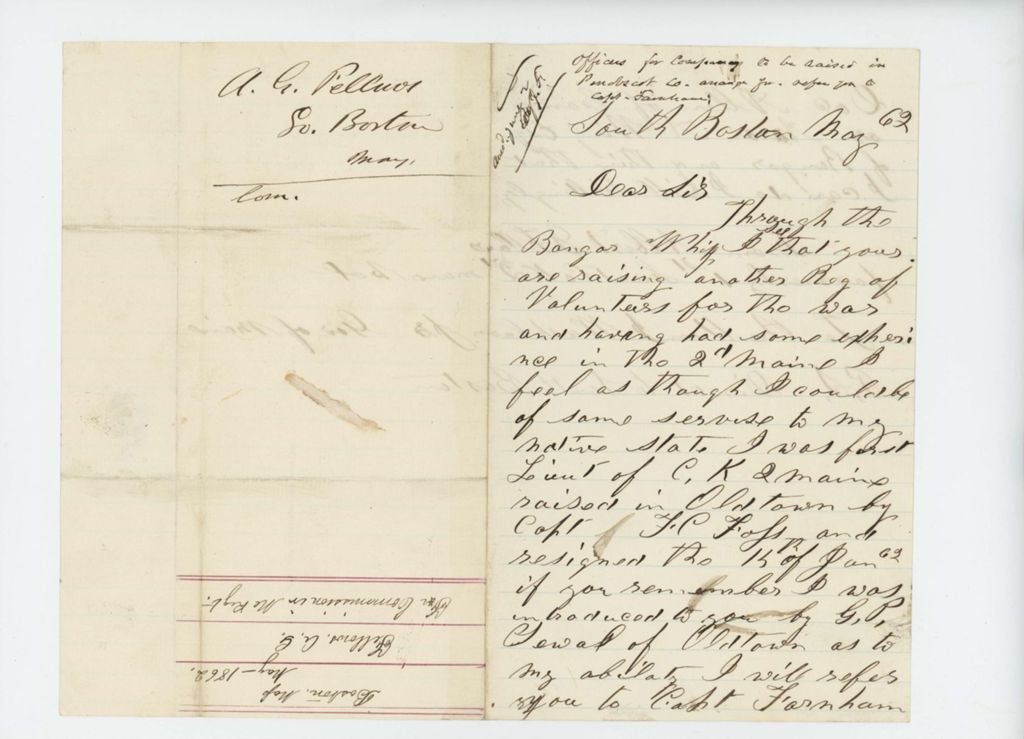 A. G. Fellows
So. Boston
May,
Com.
Officers for Company to be raised in
Penobscot Co. arrange for. refer you to
Capt. Farnham,
South Boston May 62
Dear Sir
Through the
Bangor Whip I see that your
are raising another Reg of
Volunteers for the war
and having had some experi
nce in the 2d Maine I
feel as though I could be
of some servise to my
native state I was first
Lieut of C, K 2 Maine
raised in Oldtown by
Capt F.C Foss and
resigned the 15th of Jan 62
if you remember I was
introduced to you by G. P.
Sewal of Oldtown as to
my abilaty I will refer
you to Capt Farnham
Boston. Mass
May - 1862.
Fellows. A. G.
For Commission in Me Regt.